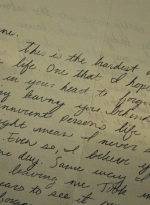 me.
This is the hardest
life. One that I hope
in your heart to forgi
leaving you behind
innocent person's life
ight means I never s
Even so, I believe if
one day. Some way
believing me. Took
ears to see it